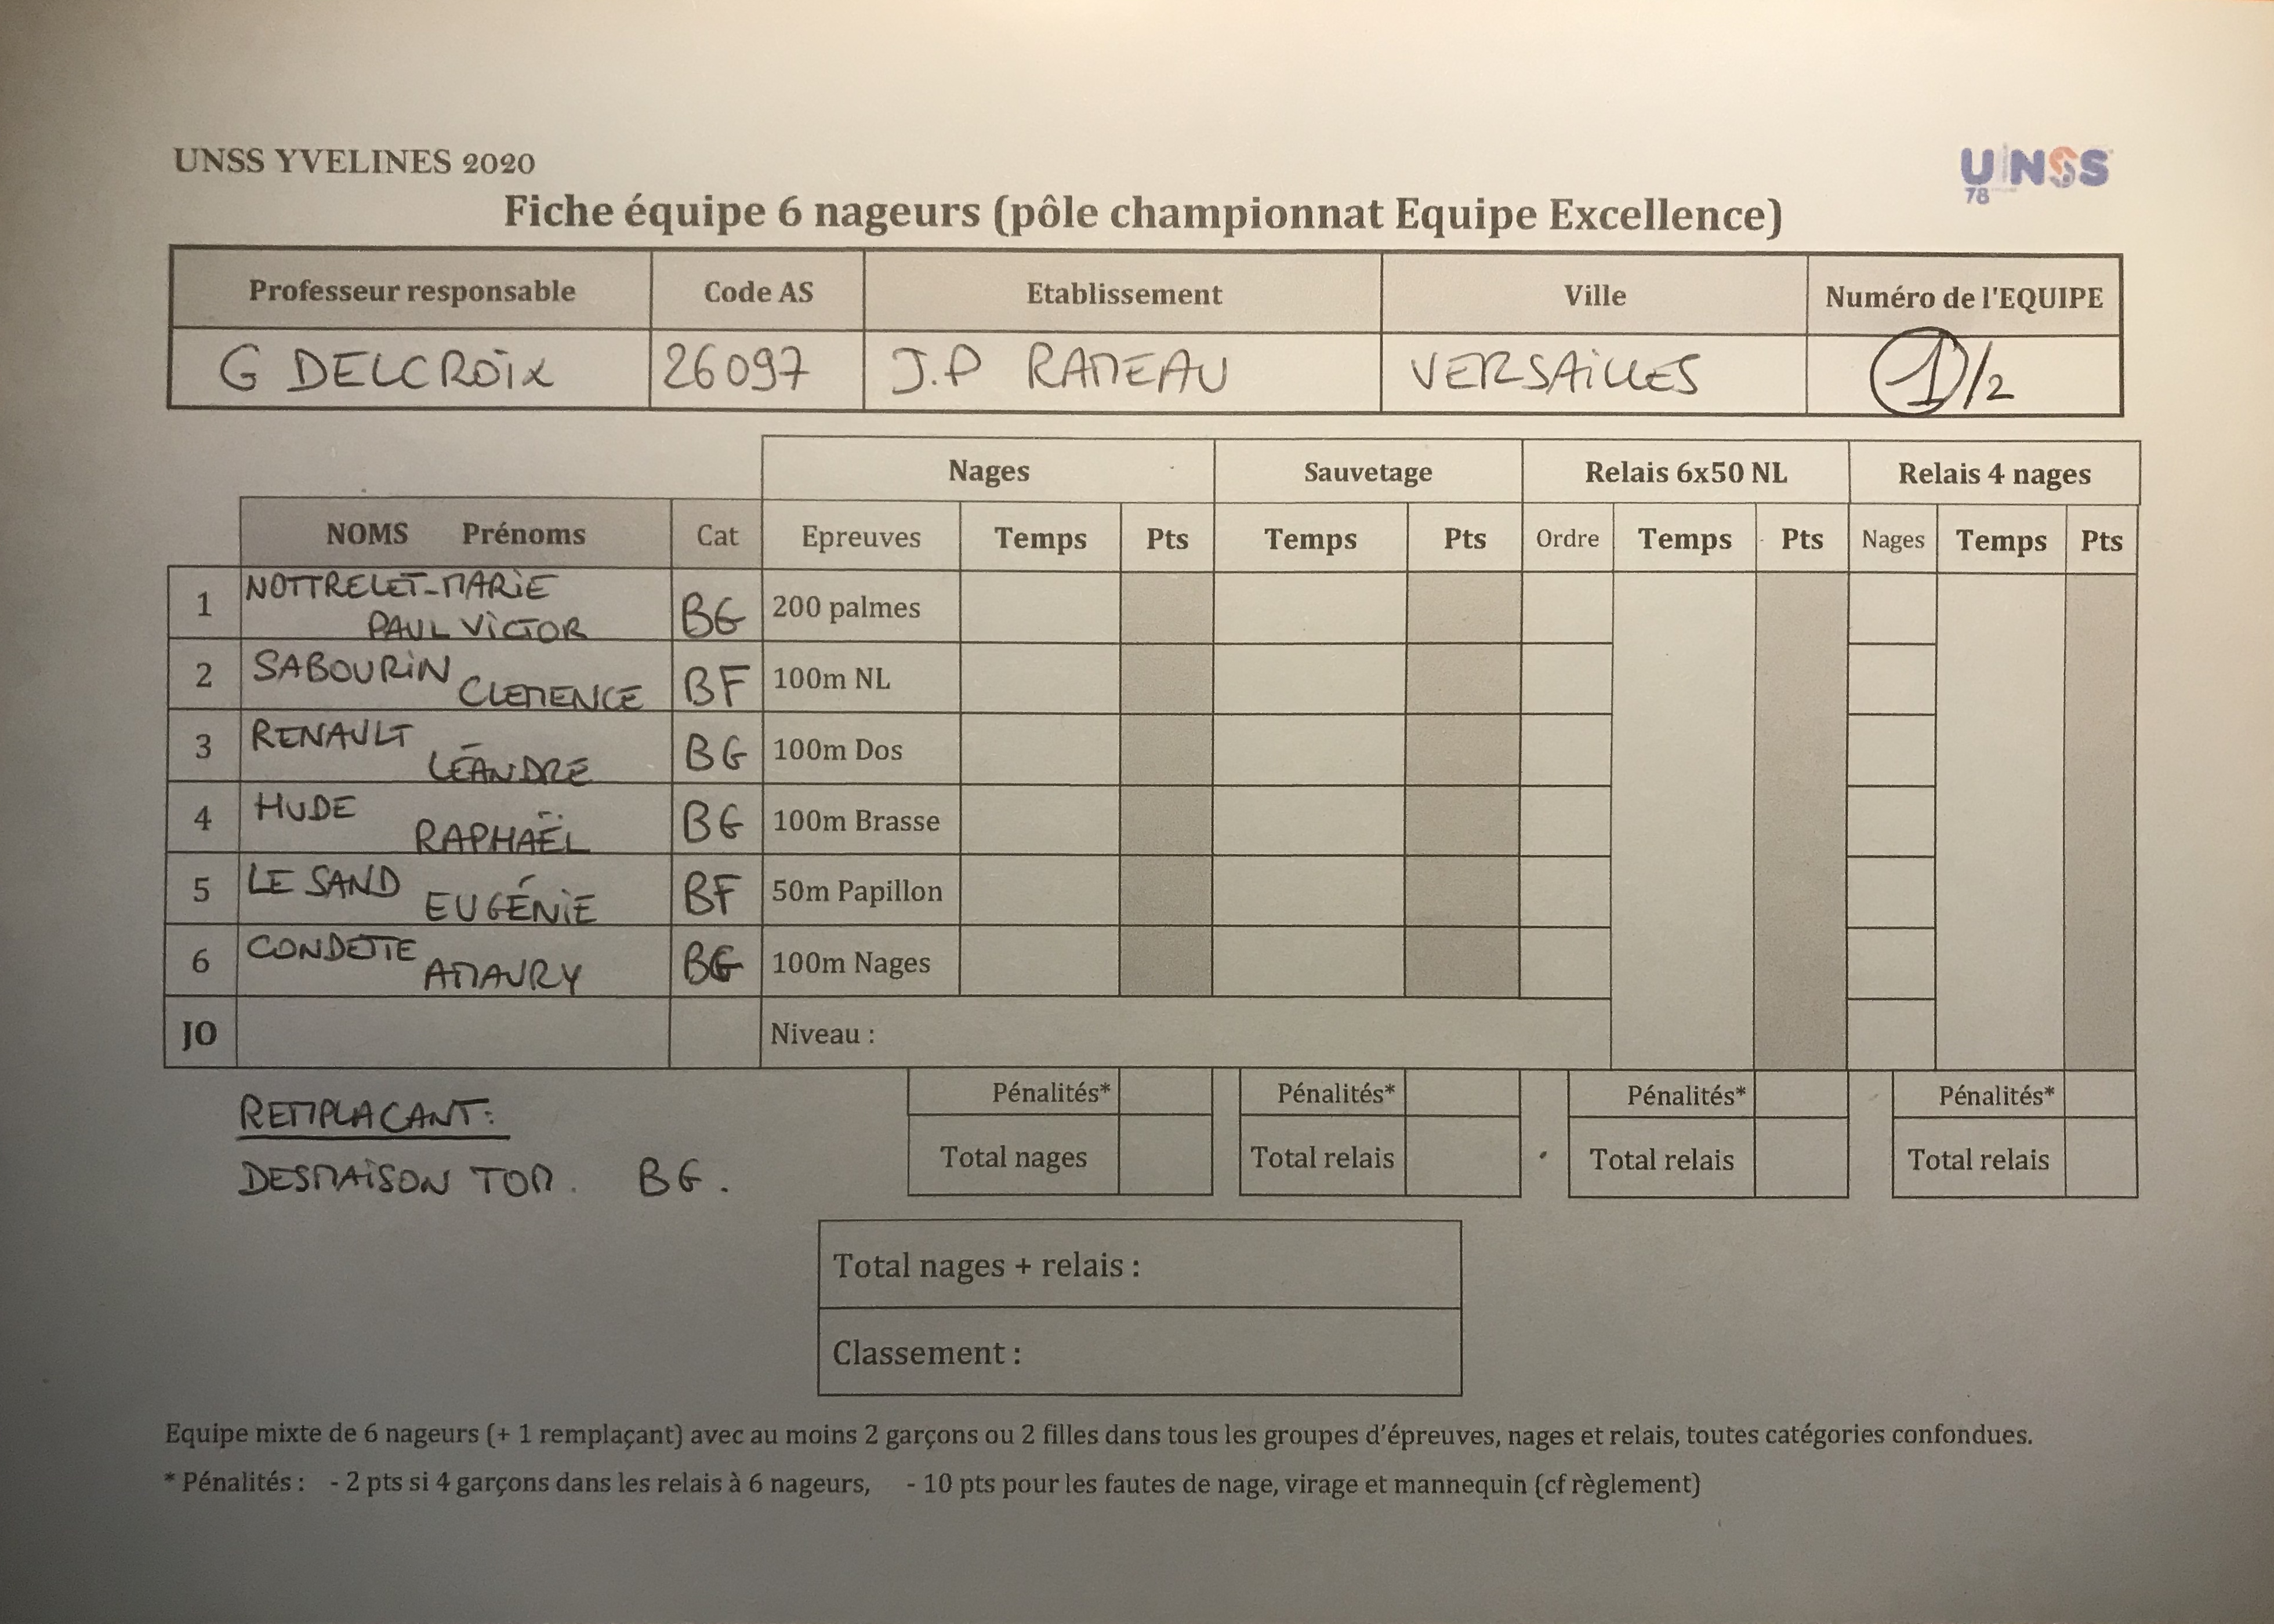 UNSS YVELINES 2020
UNSS
78
Fiche équipe 6 nageurs (pôle championnat Equipe Excellence)
Professeur responsable Code AS Etablissement Ville Numéro de l'EQUIPE
G DELCROIX 26097 J.P RAMEAU VERSAILLES 1/2
Nages Sauvetage Relais 6x50 NL Relais 4 nages
NOMS Prénoms Cat Epreuves Temps Pts Temps Pts Ordre Temps Pts Nages Temps Pts
1 NOTTRELET-MARIE PAUL VICTOR BG 200 palmes
2 SABOURIN CLEMENCE BF 100m NL
3 RENAULT LÉANDRE BG 100m Dos
4 HUDE RAPHAËL BG 100m Brasse
5 LE SAND EUGÉNIE BF 50m Papillon
6 CONDETTE AMAURY BG 100m Nages
JO Niveau :
Pénalités* Pénalités* Pénalités* Pénalités*
REMPLACANT:
Total nages Total relais Total relais Total relais
DESMAISON TOM. BG.
Total nages + relais :
Classement :
Equipe mixte de 6 nageurs (+ 1 remplaçant) avec au moins 2 garçons ou 2 filles dans tous les groupes d'épreuves, nages et relais, toutes catégories confondues.
* Pénalités : - 2 pts si 4 garçons dans les relais à 6 nageurs, - 10 pts pour les fautes de nage, virage et mannequin (cf règlement)